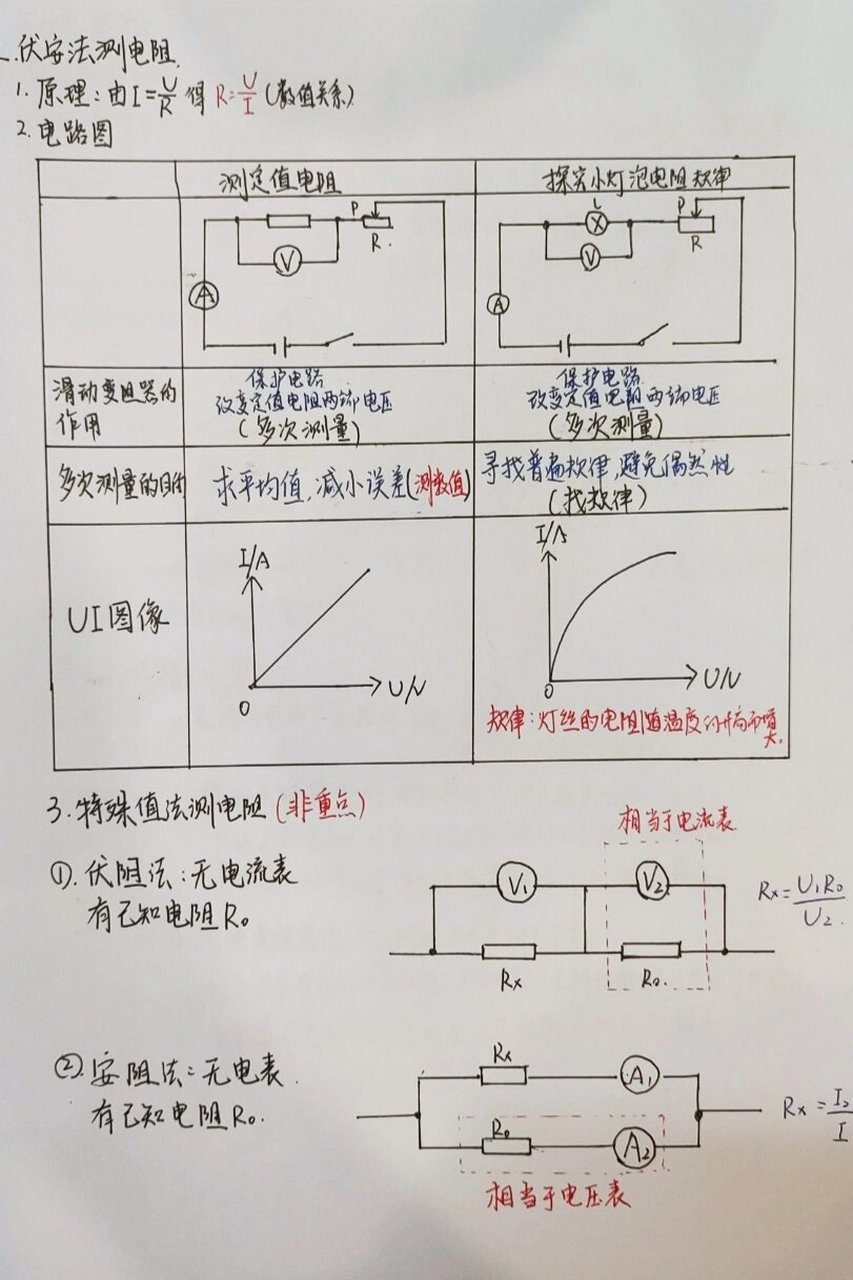 一.伏安法测电阻.
1.原理:由I=U/R 得 R=U/I (数值关系)
2.电路图
测定值电阻
探究小灯泡电阻规律
P
R.
V
A
L
P
R
V
A
滑动变阻器的
作用
保护电路
改变定值电阻两端电压
(多次测量)
保护电路
改变定值电阻两端电压
(多次测量)
多次测量的目的
求平均值,减小误差(测数值)
寻找普遍规律,避免偶然性
(找规律)
UI图像
I/A
0
U/V
I/A
0
U/V
规律:灯丝的电阻随温度的升高而增
大.
3.特殊值法测电阻(非重点)
相当于电流表.
①.伏阻法:无电流表
有已知电阻R₀.
V₁
V₂
Rx
R₀.
Rx=U₁R₀/U₂.
②.安阻法:无电表.
有已知电阻R₀.
Rx
A₁
R₀
A₂
Rx=I₂/I
相当于电压表